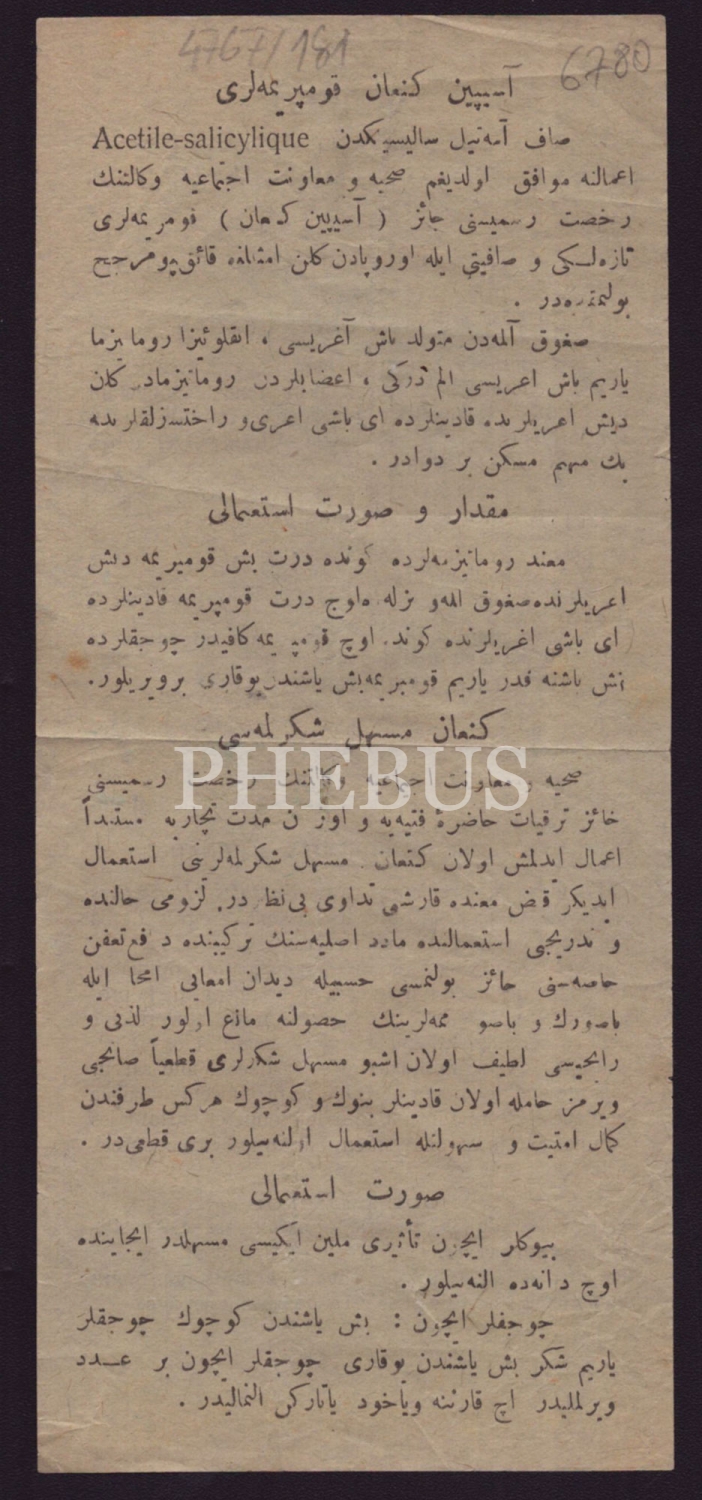 4767/181
6780
آسيپين كنعان قومپريمه‌لرى
صاف آسه‌تيل ساليسيكدن Acetile-salicylique
اعمالنه موافق اولديغم صحيه و معاونت اجتماعيه وكالتنك
رخصت رسميسنى جائز ( آسيپين كنعان ) قومپريمه‌لرى
تازه‌لكى و صافيتى ايله اوروپادن كلن امثالنه فائق ومرجح
بولنمقده‌در .
صغوق آلمه‌دن متولد باش آغريسى ، انفلوئيزا روماتيزما
ياريم باش اعريسى ، اعضابلردن روماتيزمادن كلن
ديش اعريلرنده قادينلرده اى باشى اعرى و راحتسزلقلرنده
پك مهم مسكن بر دوادر .
مقدار و صورت استعمالى
معند روماتيزمه‌لرده كونده درت بش قومپريمه ديش
اعريلرنده صغوق المه و نزله ده اوچ درت قومپريمه قادينلرده
اى باشى اغريلرنده كونده اوچ قومپريمه كافيدر چوجقلرده
بش ياشنه قدر ياريم قومپريمه بش ياشندن يوقارى بر ويريلور.
كنعان مسهل شكرلمه‌سى
PHEBUS
صحيه و معاونت اجتماعيه وكالتنك رخصت رسميسنى
حائز ترقيات حاضرۀ فنيه‌يه و اوزون مدت تجاربه مستنداً
اعمال ايدلمش اولان كنعان مسهل شكرلمه‌لرينى استعمال
ايديكز قبض معنده قارشى تداوى بى‌نظيردر. لزومى حالنده
و تدريجى استعمالنده مادۀ اصليه‌سنك تركيبنده دفع تعفن
خاصه‌سنى حائز بولنمسى حسبيله ديدان امعايى امحا ايله
باصورك و باصور ممه‌لرينك حصولنه مانع اولور لذتى و
رايحه‌سى لطيف اولان اشبو مسهل شكرلرى قطعياً صانجى
ويرمز حامله اولان قادينلر بيوك و كوچوك هركس طرفندن
كمال امنيت و سهولتله استعمال اولنه‌بيلور برى قطعى‌در .
صورت استعمالى
بيوكلر ايچون تأثيرى ملين ايكيسى مسهلدر ايجابنده
اوچ دانه‌ده النه‌بيلور .
چوجقلر ايچون : بش ياشندن كوچوك چوجقلر
ياريم شكر بش ياشندن يوقارى چوجقلر ايچون بر عدد
ويرلمليدر اچ قارننه وياخود ياتاركن النماليدر .